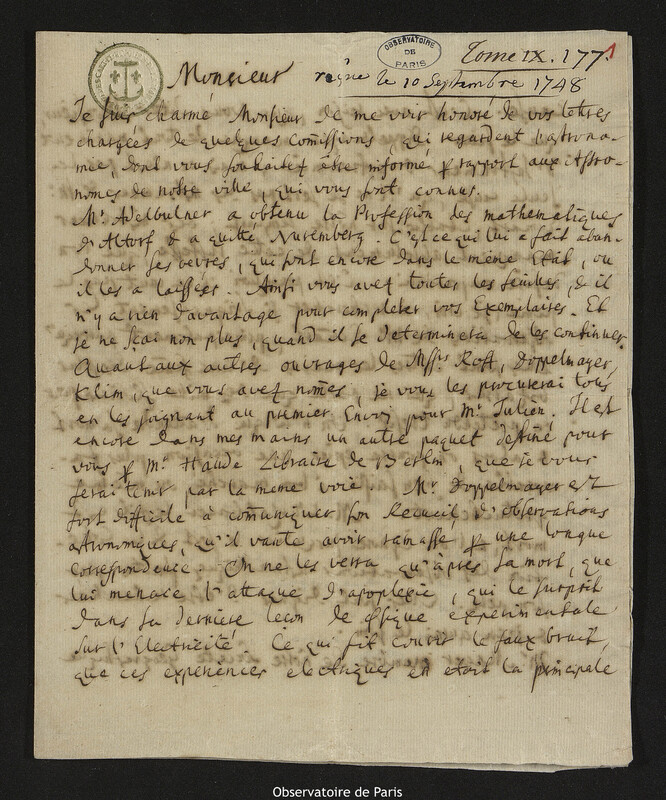 OBSERVATOIRE
DE
PARIS
Tome IX. 177. 1
Monsieur reçue le 10 Septembre 1748
Je suis charmé Monsieur de me voir honoré de vos lettres
chargées de quelques com̃issions, qui regardent l'astrono-
mie, dont vous souhaitez être informé p rapport aux Astro-
nomes de notre ville, qui vous sont connus.
Mr. Adelbulner a obtenu la Profession des mathematiques
d'Altorf & a quitté Nuremberg. C'est ce qui lui a fait aban-
donner ses œvres, qui sont encore dans le même Etat, ou
il les a laissées. Ainsi vous avez toutes les feuilles, & il
n'y a rien d'avantage pour completer vos Exemplaires. Et
je ne sçai non plus, quand il se determinera de les continuer.
Quant aux autres ouvrages de Msrs. Rost, Doppelmayer,
Klim, que vous avez nom̃es, je vous les procurerai tous
en les joignant au premier Envoy pour Mr. Julien. Il est
encore dans mes mains un autre paquet destiné pour
vous p Mr. Haude Libraire de Berlin, que je vous
ferai tenir par la meme voie. Mr. Doppelmayer est
fort difficile à com̃uniquer son Recueil d'observations
astronomiques, qu'il vante avoir ramassé p une longue
correspondence. On ne les verra qu'après sa mort, que
lui menace l'attaque d'apoplexie, qui le surprit
dans sa derniere leçon de fisique experimentale
sur l'Electricité. Ce qui fit courir le faux bruit,
que ces experiences electriques en etoit la principale
Observatoire de Paris